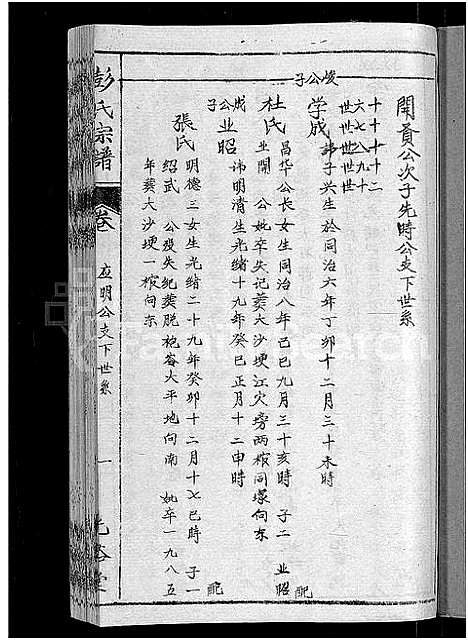 開貢公次子先時公支下世系
十十十十二
六七八九十
世世世世世
峻公子
学成 諱子兴生於同治六年丁卯十二月三十未時 配
杜氏 昌华公長女生同治八年己巳九月三十亥時 子二 业昭
业開 公妣卒失记葬大沙埂江灾旁两棺同塚向东
成公子
业昭 讳明清生光绪十九年癸巳正月十二申時 配
張氏 明德三女生光緒二十九年癸卯十二月十七巳時 子一
绍武 公殁失纪葬脱袍峇大平地向南 妣卒一九八五
年葬大沙埂一棺向东
彭氏宗譜
卷
应明公支下世系
一
光裕堂